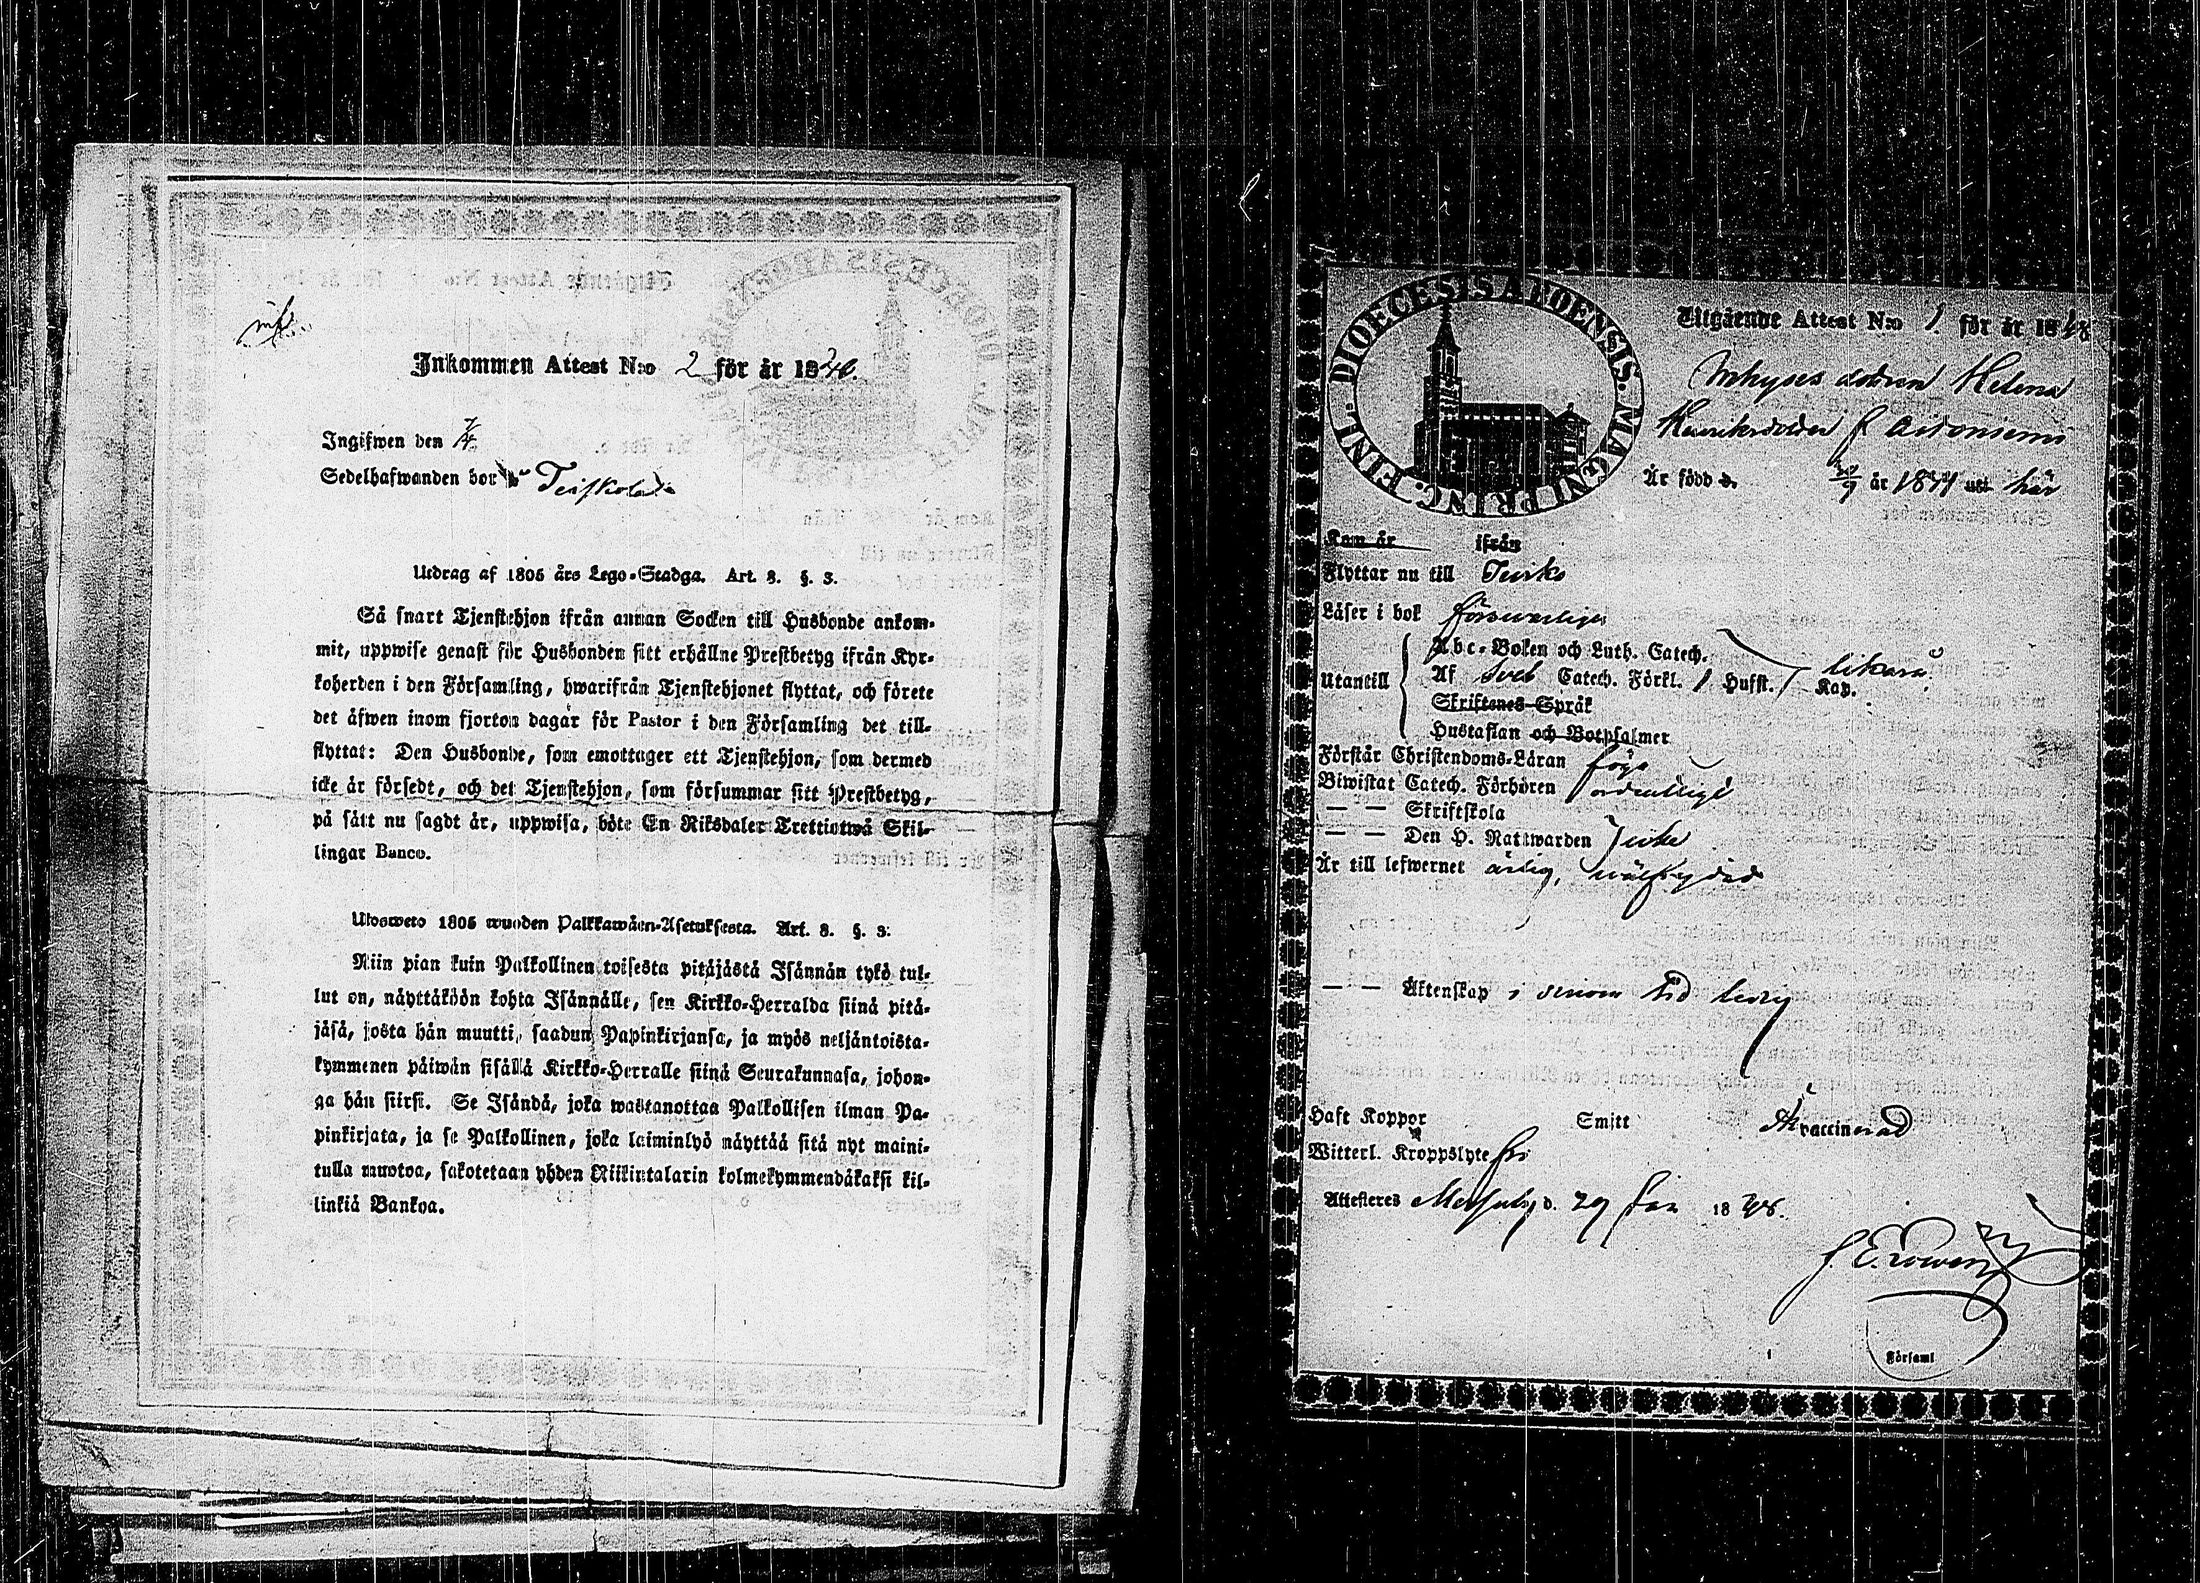 Inkommen Attest N:o 2 för år 1846.
Ingifwen den 7/4
Sedelhafwanden bor
Utdrag af 1805 års Lego-Stadga. Art. 8. §. 3.
Så snart Tjenstehjon ifrån annan Socken till Husbonde ankom-
mit, uppwise genast för Husbonden sitt erhållne Prestbetyg ifrån Kyr-
koherden i den Församling, hwarifrån Tjenstehjonet flyttat, och förete
det äfwen inom fjorton dagar för Pastor i den Församling det till-
flyttat: Den Husbonde, som emottager ett Tjenstehjon, som dermed
icke är försedt, och det Tjenstehjon, som försummar sitt Prestbetyg,
på sätt nu sagdt är, uppwisa, böte En Riksdaler Trettiotwå Skil-
lingar Banco.
Ulosweto 1805 wuoden Palkkawäen-Asetuksesta. Art. 8. §. 3.
Niin pian kuin Palkollinen toisesta pitäjästä Isännän tykö tul-
lut on, näyttäköön kohta Isännälle, sen Kirkko-Herralda siinä pitä-
jäsä, josta hän muutti, saadun Papinkirjansa, ja myös neljäntoista-
kymmenen päiwän sisällä Kirkko-Herralle siinä Seurakunnasa, johon-
ga hän siirsi. Se Isändä, joka wastanottaa Palkollisen ilman Pa-
pinkirjata, ja se Palkollinen, joka laiminlyö näyttää sitä nyt maini-
tulla muotoa, sakotetaan yhden Riikintalarin kolmekymmendäkaksi kil-
linkiä Bankoa.
DIOECESIS ABOENSIS. MAGNI PRINC. FINL.
Utgående Attest N:o 1 för år 18
dottren Helena
Henriksdotter f
Är född d. år 18 uti här
Kom år ifrån
Flyttar nu till
Läser i bok försvarligen
Utantill
Abc-Boken och Luth. Catech.
Af Sveb Catech. Förkl. / Hufst. / Kap. likaså
Skriftenes Språk
Hustaflan och Botpsalmer
Förstår Christendoms-Läran
Biwistat Catech. Förhören ordentligt
— — Skriftskola
— — Den H. Nattwarden Icke
Är till lefwernet ärlig,
— — Äktenskap i senom tid ledig
Haft Koppor Smitt Är vaccinerad
Witterl. Kroppslyte fri
Attesteras d. 29 Jan 18
Församl